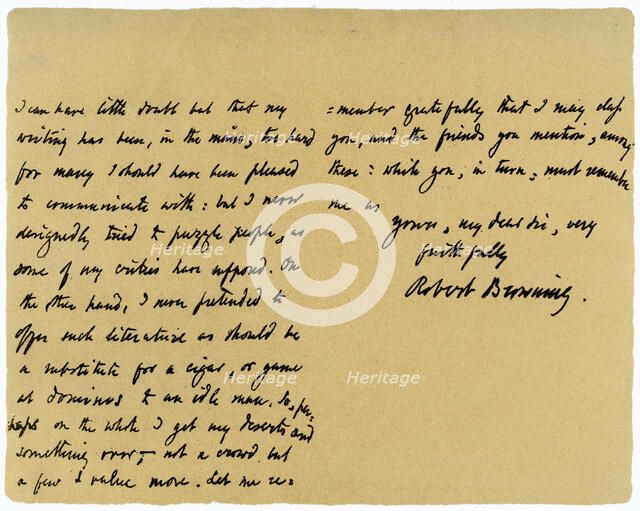 I can have little doubt but that my
writing has been, in the main, too hard
for many I should have been pleased
to communicate with: but I never
designedly tried to puzzle people, as
some of my critics have supposed. On
the other hand, I never pretended to
offer such literature as should be
a substitute for a cigar, or game
at dominos to an idle man. So, per-
haps on the whole I get my deserts and
something over,— not a crowd but
a few I value more. Let me re=
=member gratefully that I may class
you, and the friends you mention, among
these: while you, in turn, must remember
me as
yours, my dear Sir, very
faithfully
Robert Browning.
Heritage
Heritage
Heritage
Heritage
C